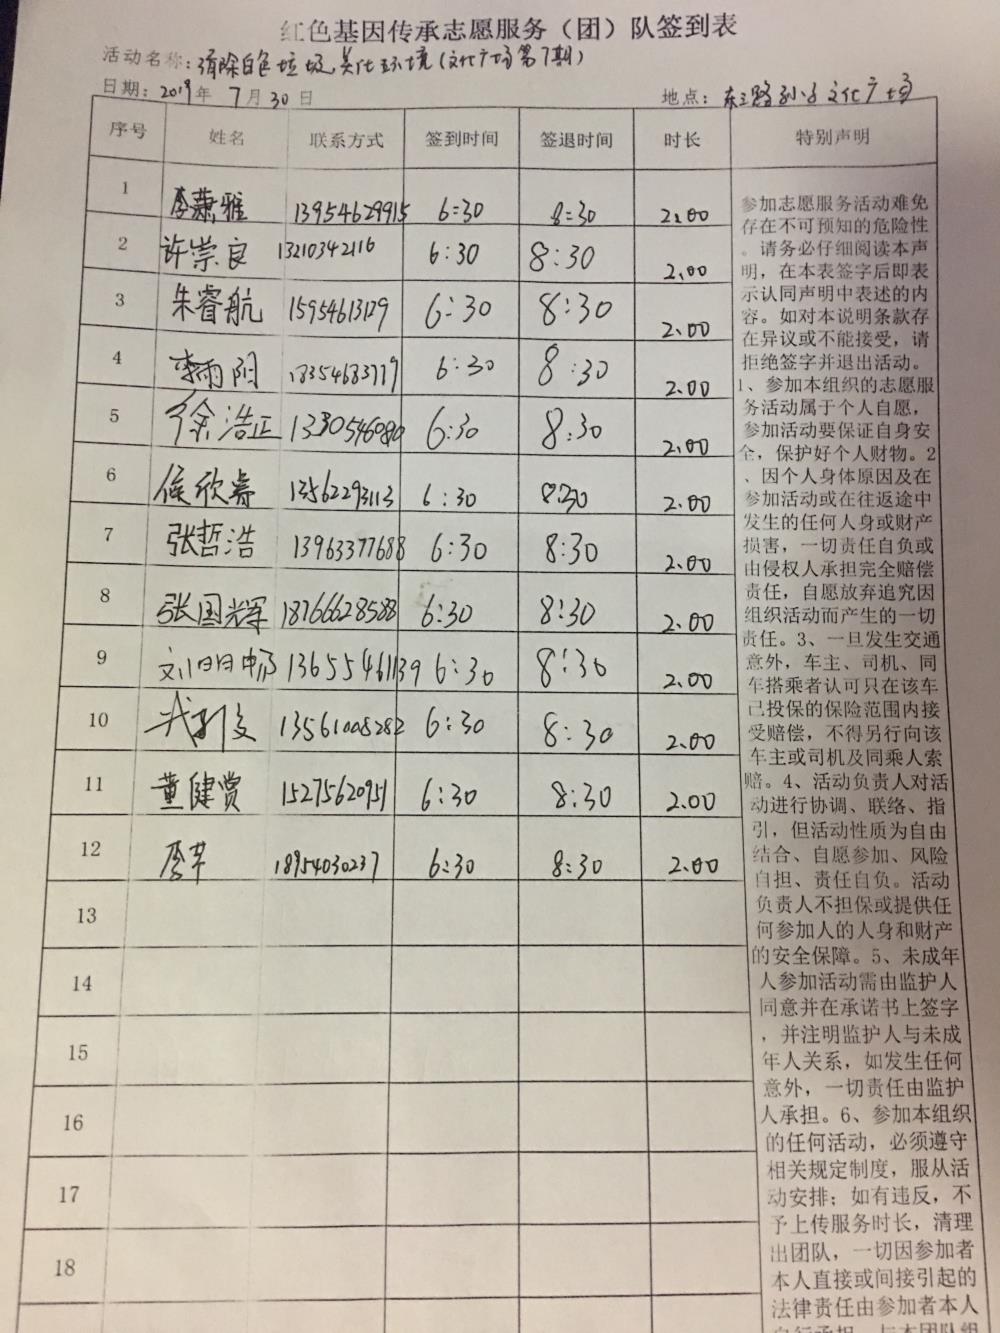 红色基因传承志愿服务（团）队签到表
活动名称：清除白色垃圾,美化环境(文化广场第7期)
日期：2019年 7月30日 地点：东三路孙子文化广场
序号 姓名 联系方式 签到时间 签退时间 时长 特别声明
1 李萧雅 13954629915 6:30 8:30 2.00
2 许崇良 13210342116 6:30 8:30 2.00
3 朱睿航 15954613129 6:30 8:30 2.00
4 李雨阳 18354633779 6:30 8:30 2.00
5 徐浩正 6:30 8:30 2.00
6 侯欣睿 13562293113 6:30 8:30 2.00
7 张哲浩 13963377688 6:30 8:30 2.00
8 张国辉 18766628588 6:30 8:30 2.00
9 13655461139 6:30 8:30 2.00
10 13561008282 6:30 8:30 2.00
11 董健赏 15275620951 6:30 8:30 2.00
12 18954030237 6:30 8:30 2.00
13
14
15
16
17
18
参加志愿服务活动难免
存在不可预知的危险性
。请务必仔细阅读本声
明，在本表签字后即表
示认同声明中表述的内
容。如对本说明条款存
在异议或不能接受，请
拒绝签字并退出活动。
1、参加本组织的志愿服
务活动属于个人自愿，
参加活动要保证自身安
全，保护好个人财物。2
、因个人身体原因及在
参加活动或在往返途中
发生的任何人身或财产
损害，一切责任自负或
由侵权人承担完全赔偿
责任，自愿放弃追究因
组织活动而产生的一切
责任。3、一旦发生交通
意外，车主、司机、同
车搭乘者认可只在该车
已投保的保险范围内接
受赔偿，不得另行向该
车主或司机及同乘人索
赔。4、活动负责人对活
动进行协调、联络、指
引，但活动性质为自由
结合、自愿参加、风险
自担、责任自负。活动
负责人不担保或提供任
何参加人的人身和财产
的安全保障。5、未成年
人参加活动需由监护人
同意并在承诺书上签字
，并注明监护人与未成
年人关系，如发生任何
意外，一切责任由监护
人承担。6、参加本组织
的任何活动，必须遵守
相关规定制度，服从活
动安排；如有违反，不
予上传服务时长，清理
出团队，一切因参加者
本人直接或间接引起的
法律责任由参加者本人
自行承担，与本团队组